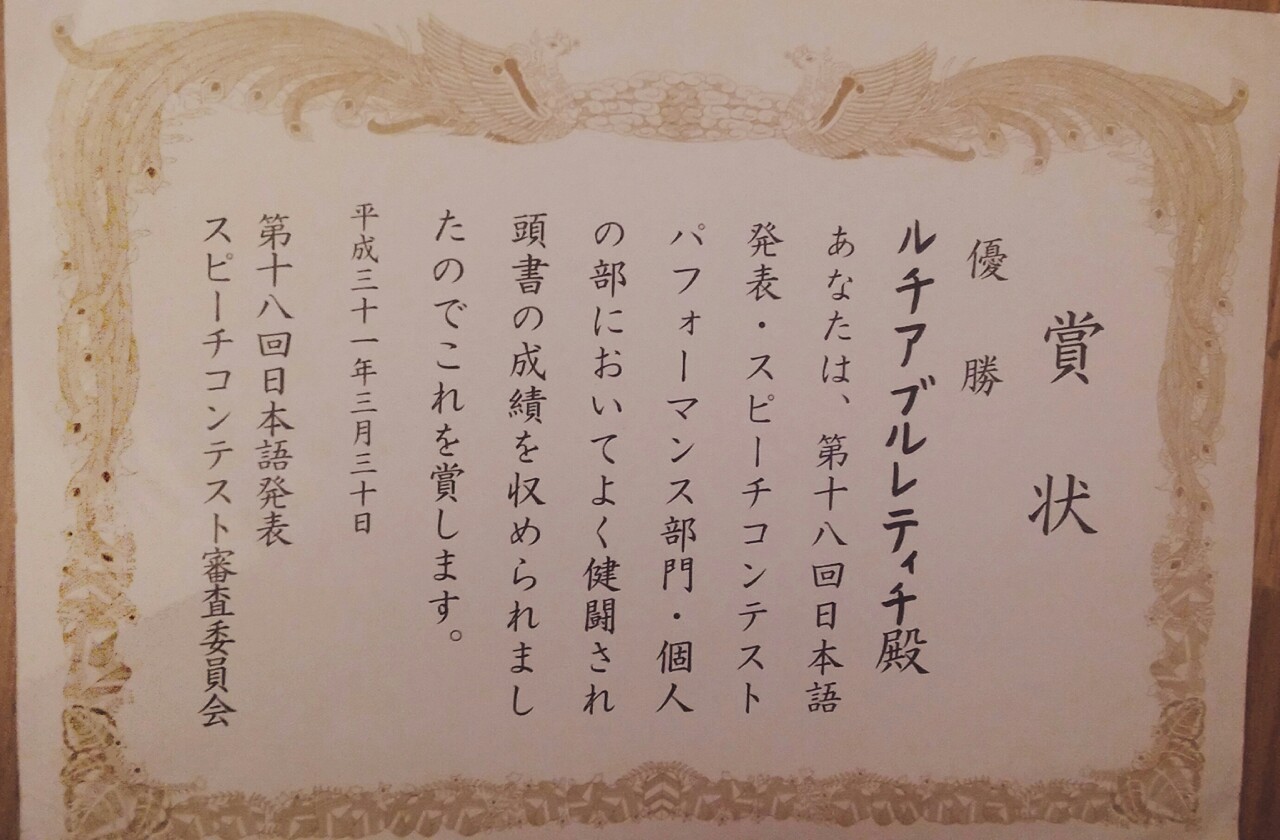 賞状
優勝
ルチアブルレティチ殿
あなたは、第十八回日本語
発表・スピーチコンテスト
パフォーマンス部門・個人
の部においてよく健闘され
頭書の成績を収められまし
たのでこれを賞します。
平成三十一年三月三十日
第十八回日本語発表
スピーチコンテスト審査委員会